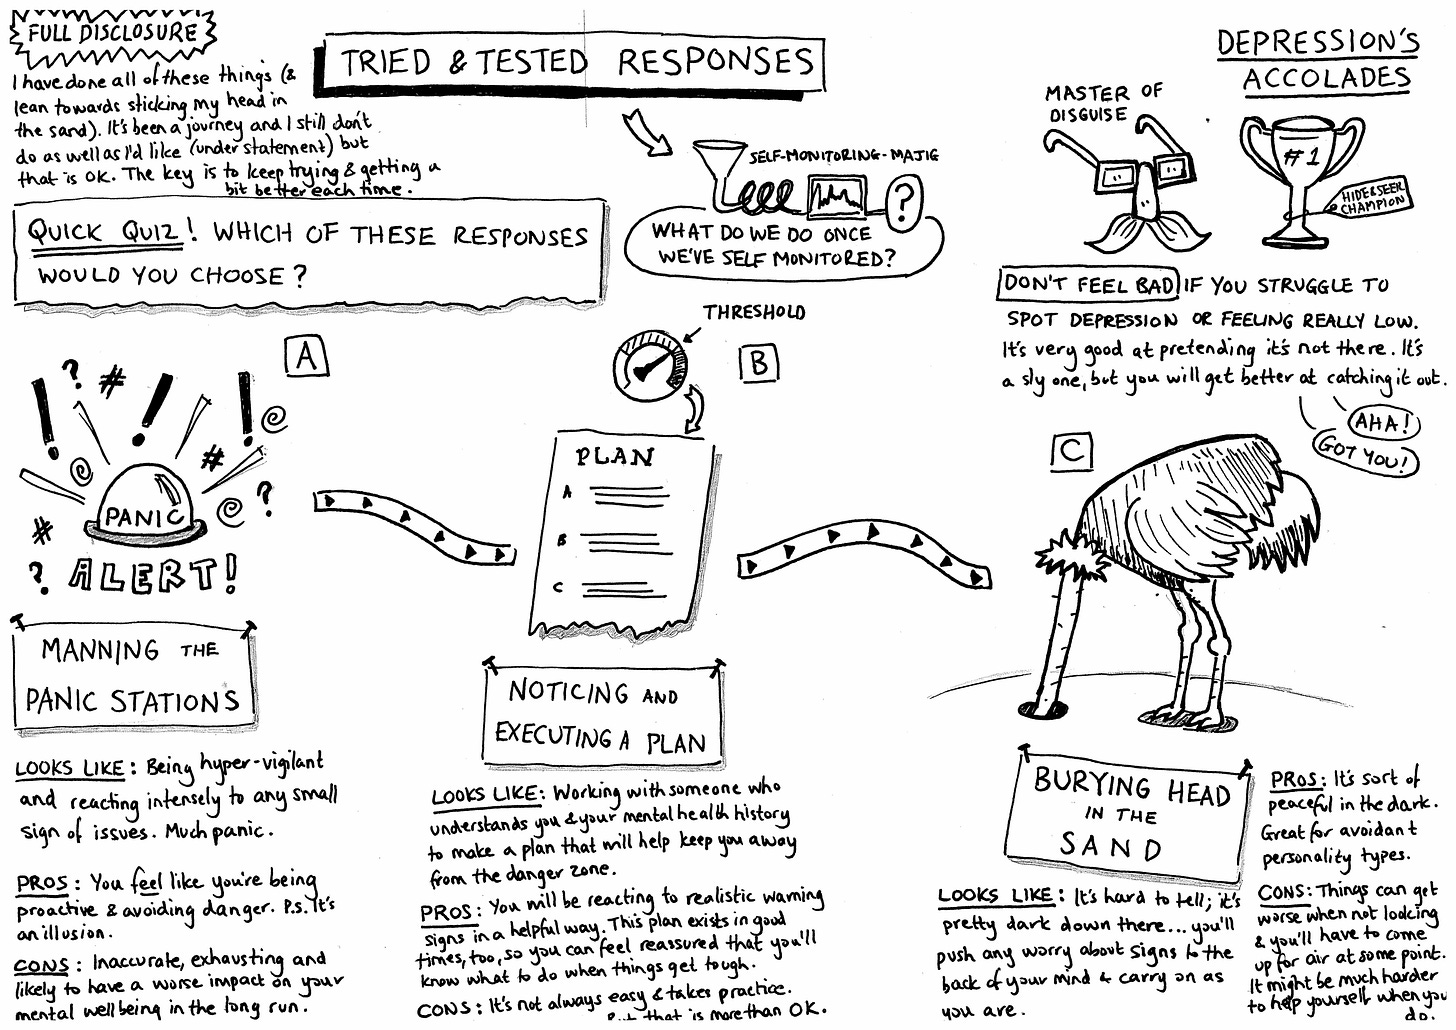 FULL DISCLOSURE
I have done all of these things (&
lean towards sticking my head in
the sand). It's been a journey and I still don't
do as well as I'd like (understatement) but
that is OK. The key is to keep trying & getting a
bit better each time.
TRIED & TESTED RESPONSES
SELF-MONITORING-MAJIG
?
WHAT DO WE DO ONCE
WE'VE SELF MONITORED?
QUICK QUIZ! WHICH OF THESE RESPONSES
WOULD YOU CHOOSE?
DEPRESSION'S
ACCOLADES
MASTER OF
DISGUISE
#1
HIDE & SEEK
CHAMPION
DON'T FEEL BAD IF YOU STRUGGLE TO
SPOT DEPRESSION OR FEELING REALLY LOW.
It's very good at pretending it's not there. It's
a sly one, but you will get better at catching it out.
AHA!
GOT YOU!
A
! ? # ! ! # # ? ?
PANIC
ALERT!
MANNING THE
PANIC STATIONS
LOOKS LIKE: Being hyper-vigilant
and reacting intensely to any small
sign of issues. Much panic.
PROS: You feel like you're being
proactive & avoiding danger. P.S. It's
an illusion.
CONS: Inaccurate, exhausting and
likely to have a worse impact on your
mental wellbeing in the long run.
THRESHOLD
B
PLAN
A
B
C
NOTICING AND
EXECUTING A PLAN
LOOKS LIKE: Working with someone who
understands you & your mental health history
to make a plan that will help keep you away
from the danger zone.
PROS: You will be reacting to realistic warning
signs in a helpful way. This plan exists in good
times, too, so you can feel reassured that you'll
know what to do when things get tough.
CONS: It's not always easy & takes practice.
But that is more than OK.
C
BURYING HEAD
IN THE
SAND
LOOKS LIKE: It's hard to tell; it's
pretty dark down there... you'll
push any worry about signs to the
back of your mind & carry on as
you are.
PROS: It's sort of
peaceful in the dark.
Great for avoidant
personality types.
CONS: Things can get
worse when not looking
& you'll have to come
up for air at some point.
It might be much harder
to help yourself when you
do.